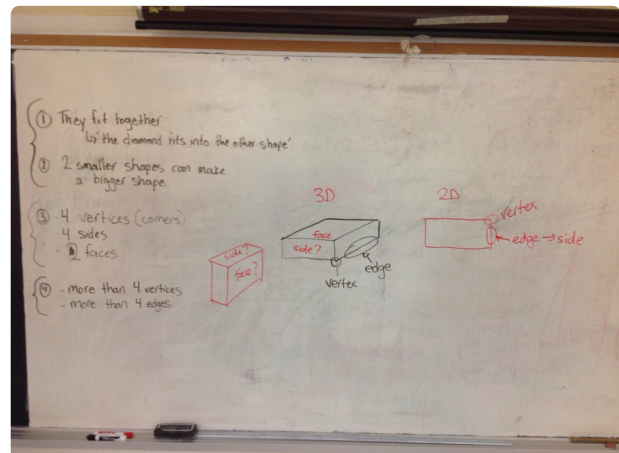 ① They fit together
↳ 'the diamond fits into the other shape'
② 2 smaller shapes can make
a bigger shape
③ - 4 vertices (corners)
- 4 sides
- 2 faces
④ - more than 4 vertices
- more than 4 edges
3D
face
side?
edge
vertex
side?
face?
2D
vertex
edge → side